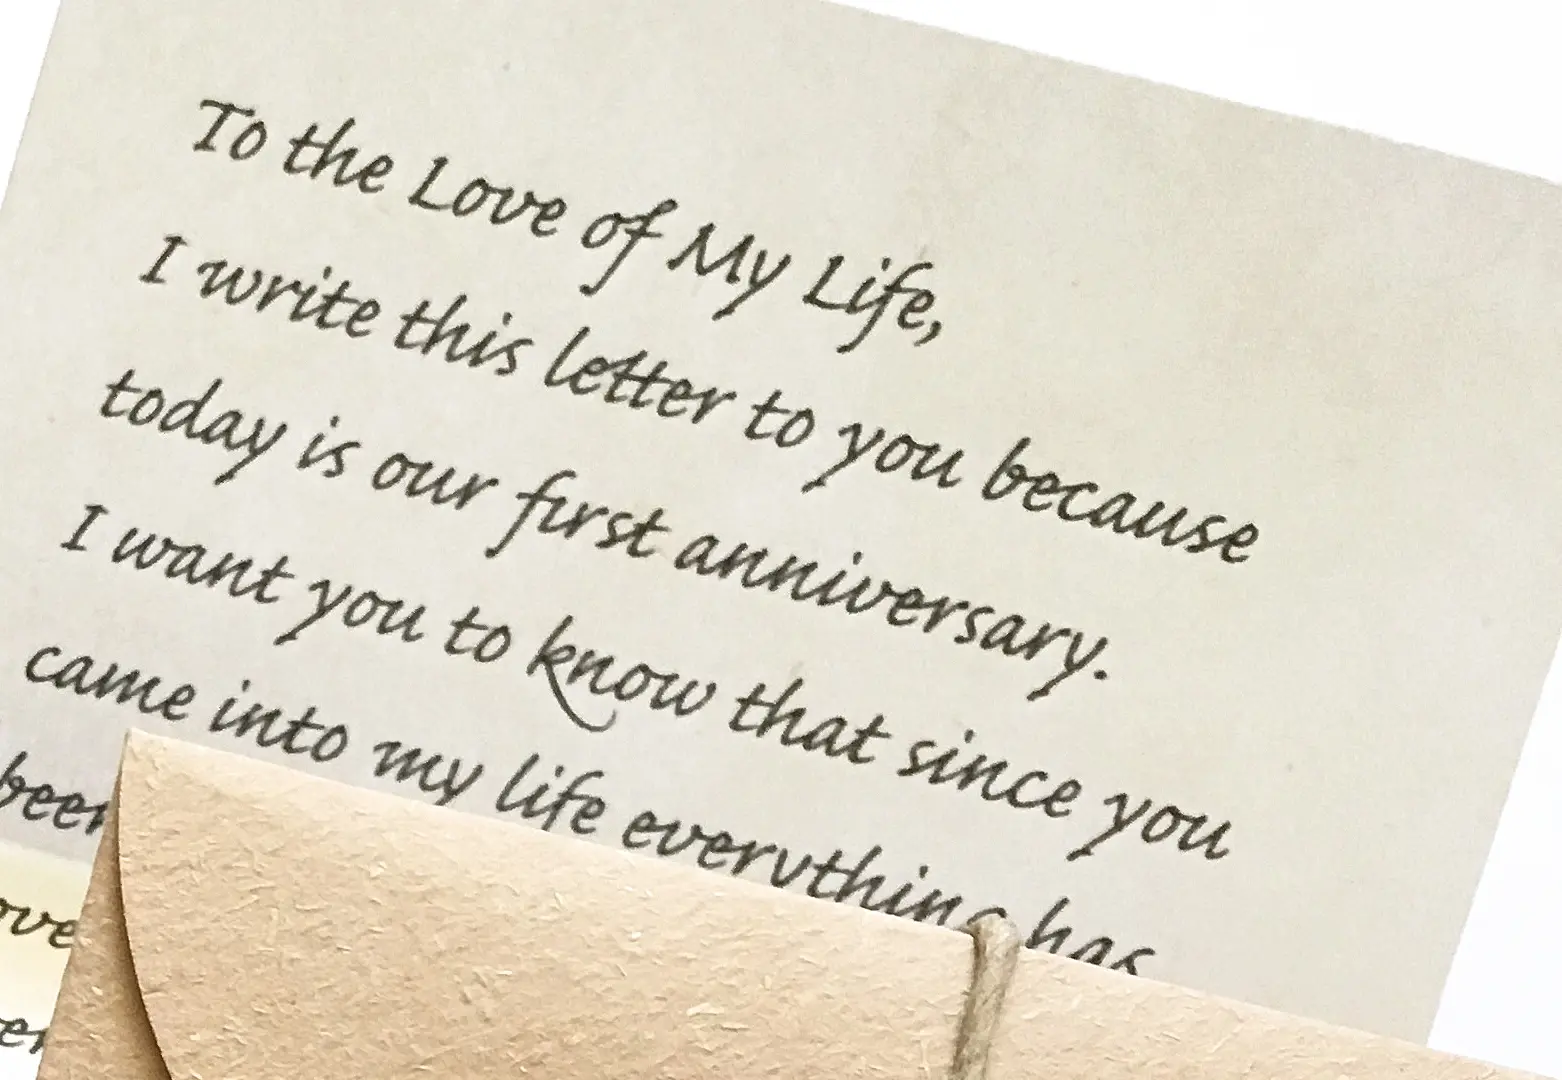 To the Love of My Life,
I write this letter to you because
today is our first anniversary.
I want you to know that since you
came into my life everything has
been